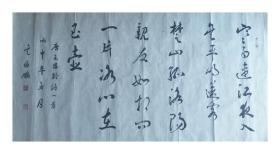 寒雨連江夜入
吳平明送客
楚山孤洛陽
親友如相問
一片冰心在
玉壺
唐王昌齡詩一首